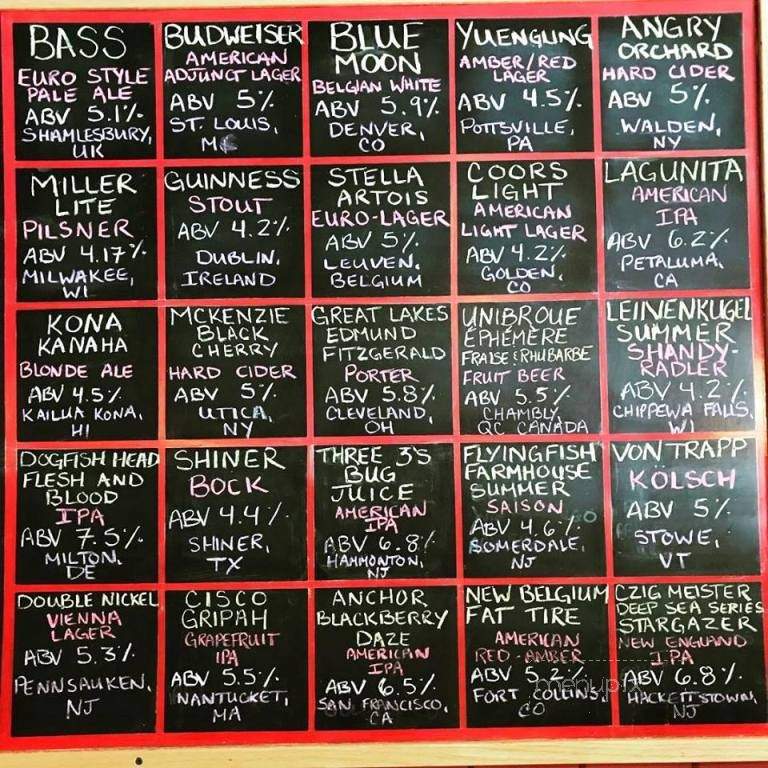 BASS
EURO STYLE
PALE ALE
ABV 5.1%
SHAMLESBURY,
UK
BUDWEISER
AMERICAN
ADJUNCT LAGER
ABV 5%
ST. LOUIS,
BLUE
MOON
BELGIAN WHITE
ABV 5.9%
DENVER,
CO
YUENGLING
AMBER/RED
LAGER
ABV 4.5%
POTTSVILLE,
PA
ANGRY
ORCHARD
HARD CIDER
ABV 5%
WALDEN,
NY
MILLER
LITE
PILSNER
ABV 4.17%
MILWAKEE,
WI
GUINNESS
STOUT
ABV 4.2%
DUBLIN,
IRELAND
STELLA
ARTOIS
EURO-LAGER
ABV 5%
LEUVEN,
BELGIUM
COORS
LIGHT
AMERICAN
LIGHT LAGER
ABV 4.2%
GOLDEN,
CO
LAGUNITA
AMERICAN
IPA
ABV 6.2%
PETALUMA,
CA
KONA
KANAHA
BLONDE ALE
ABV 4.5%
KAILUA KONA,
HI
MCKENZIE
BLACK
CHERRY
HARD CIDER
ABV 5%
UTICA,
NY
GREAT LAKES
EDMUND
FITZGERALD
PORTER
ABV 5.8%
CLEVELAND,
OH
UNIBROUE
ÉPHÉMÈRE
FRAISE & RHUBARBE
FRUIT BEER
ABV 5.5%
CHAMBLY,
QC CANADA
LEINENKUGEL
SUMMER
SHANDY-
RADLER
ABV 4.2%
CHIPPEWA FALLS,
WI
DOGFISH HEAD
FLESH AND
BLOOD
IPA
ABV 7.5%
MILTON,
DE
SHINER
BOCK
ABV 4.4%
SHINER,
TX
THREE 3'S
BUG
JUICE
AMERICAN
IPA
ABV 6.8%
HAMMONTON,
NJ
FLYINGFISH
FARMHOUSE
SUMMER
SAISON
ABV 4.6%
SOMERDALE,
NJ
VON TRAPP
KÖLSCH
ABV 5%
STOWE,
VT
DOUBLE NICKEL
VIENNA
LAGER
ABV 5.3%
PENNSAUKEN,
NJ
CISCO
GRIPAH
GRAPEFRUIT
IPA
ABV 5.5%
NANTUCKET,
MA
ANCHOR
BLACKBERRY
DAZE
AMERICAN
IPA
ABV 6.5%
SAN FRANCISCO,
CA
NEW BELGIUM
FAT TIRE
AMERICAN
RED AMBER
ABV 5.2%
FORT COLLINS,
CO
CZIG MEISTER
DEEP SEA SERIES
STARGAZER
NEW ENGLAND
IPA
ABV 6.8%
HACKETTSTOWN,
NJ